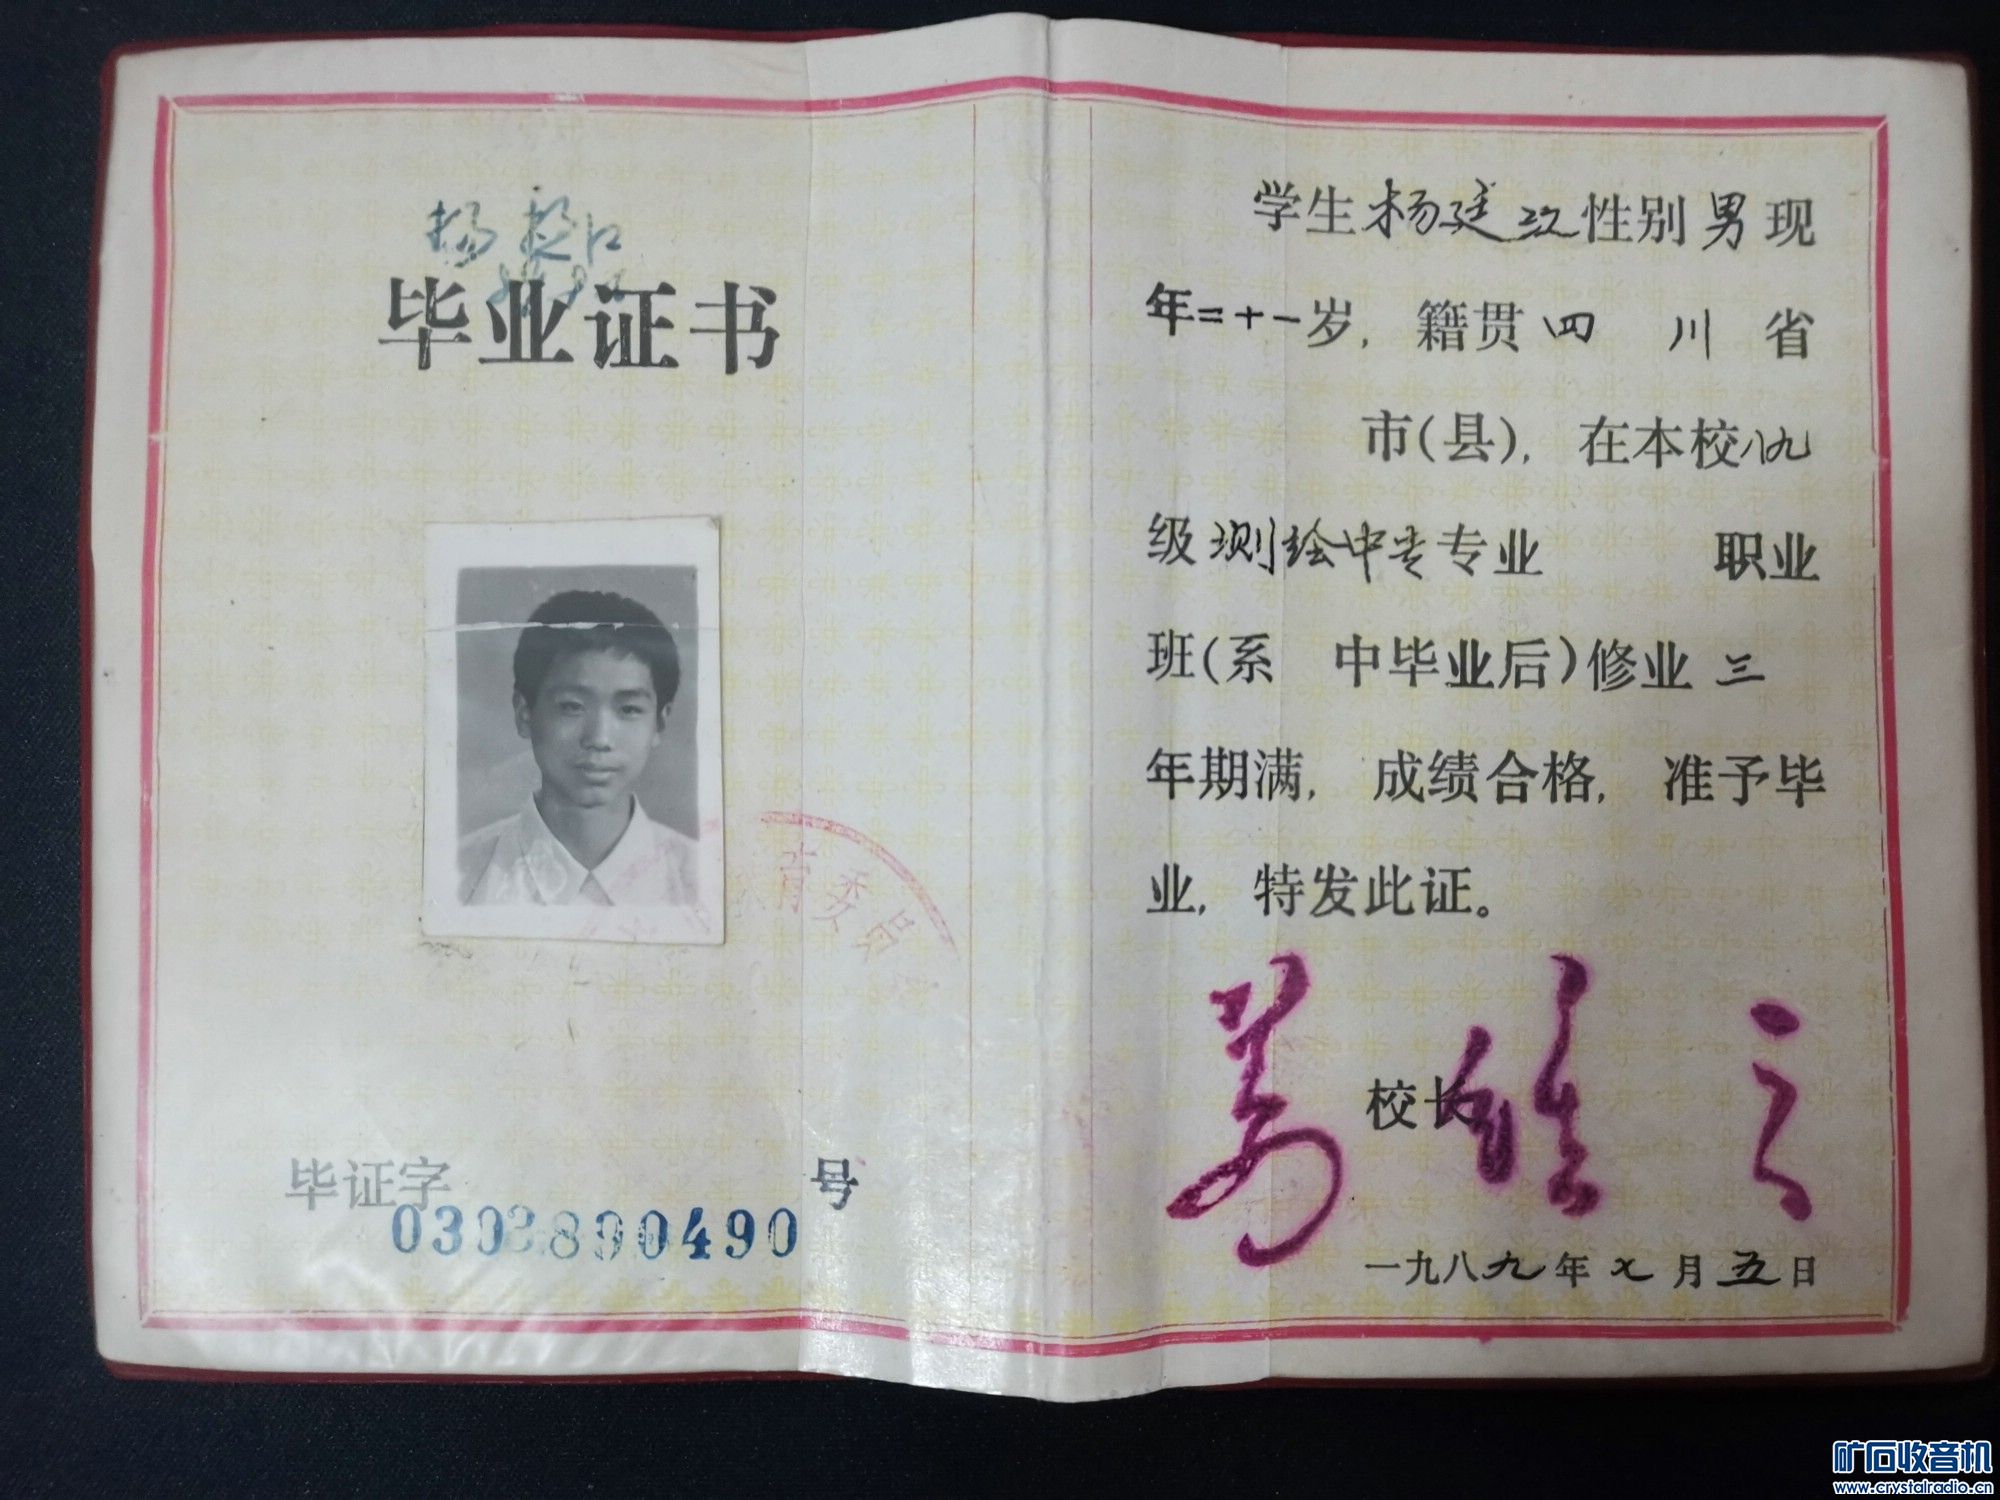 杨
毕业证书
育委员
毕证字
号
0303890490
学生杨廷 性别男现
年二十一岁，籍贯四川省
市(县)，在本校八九
级测绘中专专业 职业
班(系 中毕业后)修业三
年期满，成绩合格，准予毕
业，特发此证。
校长
一九八九年七月五日
矿石收音机
www.crystalradio.cn